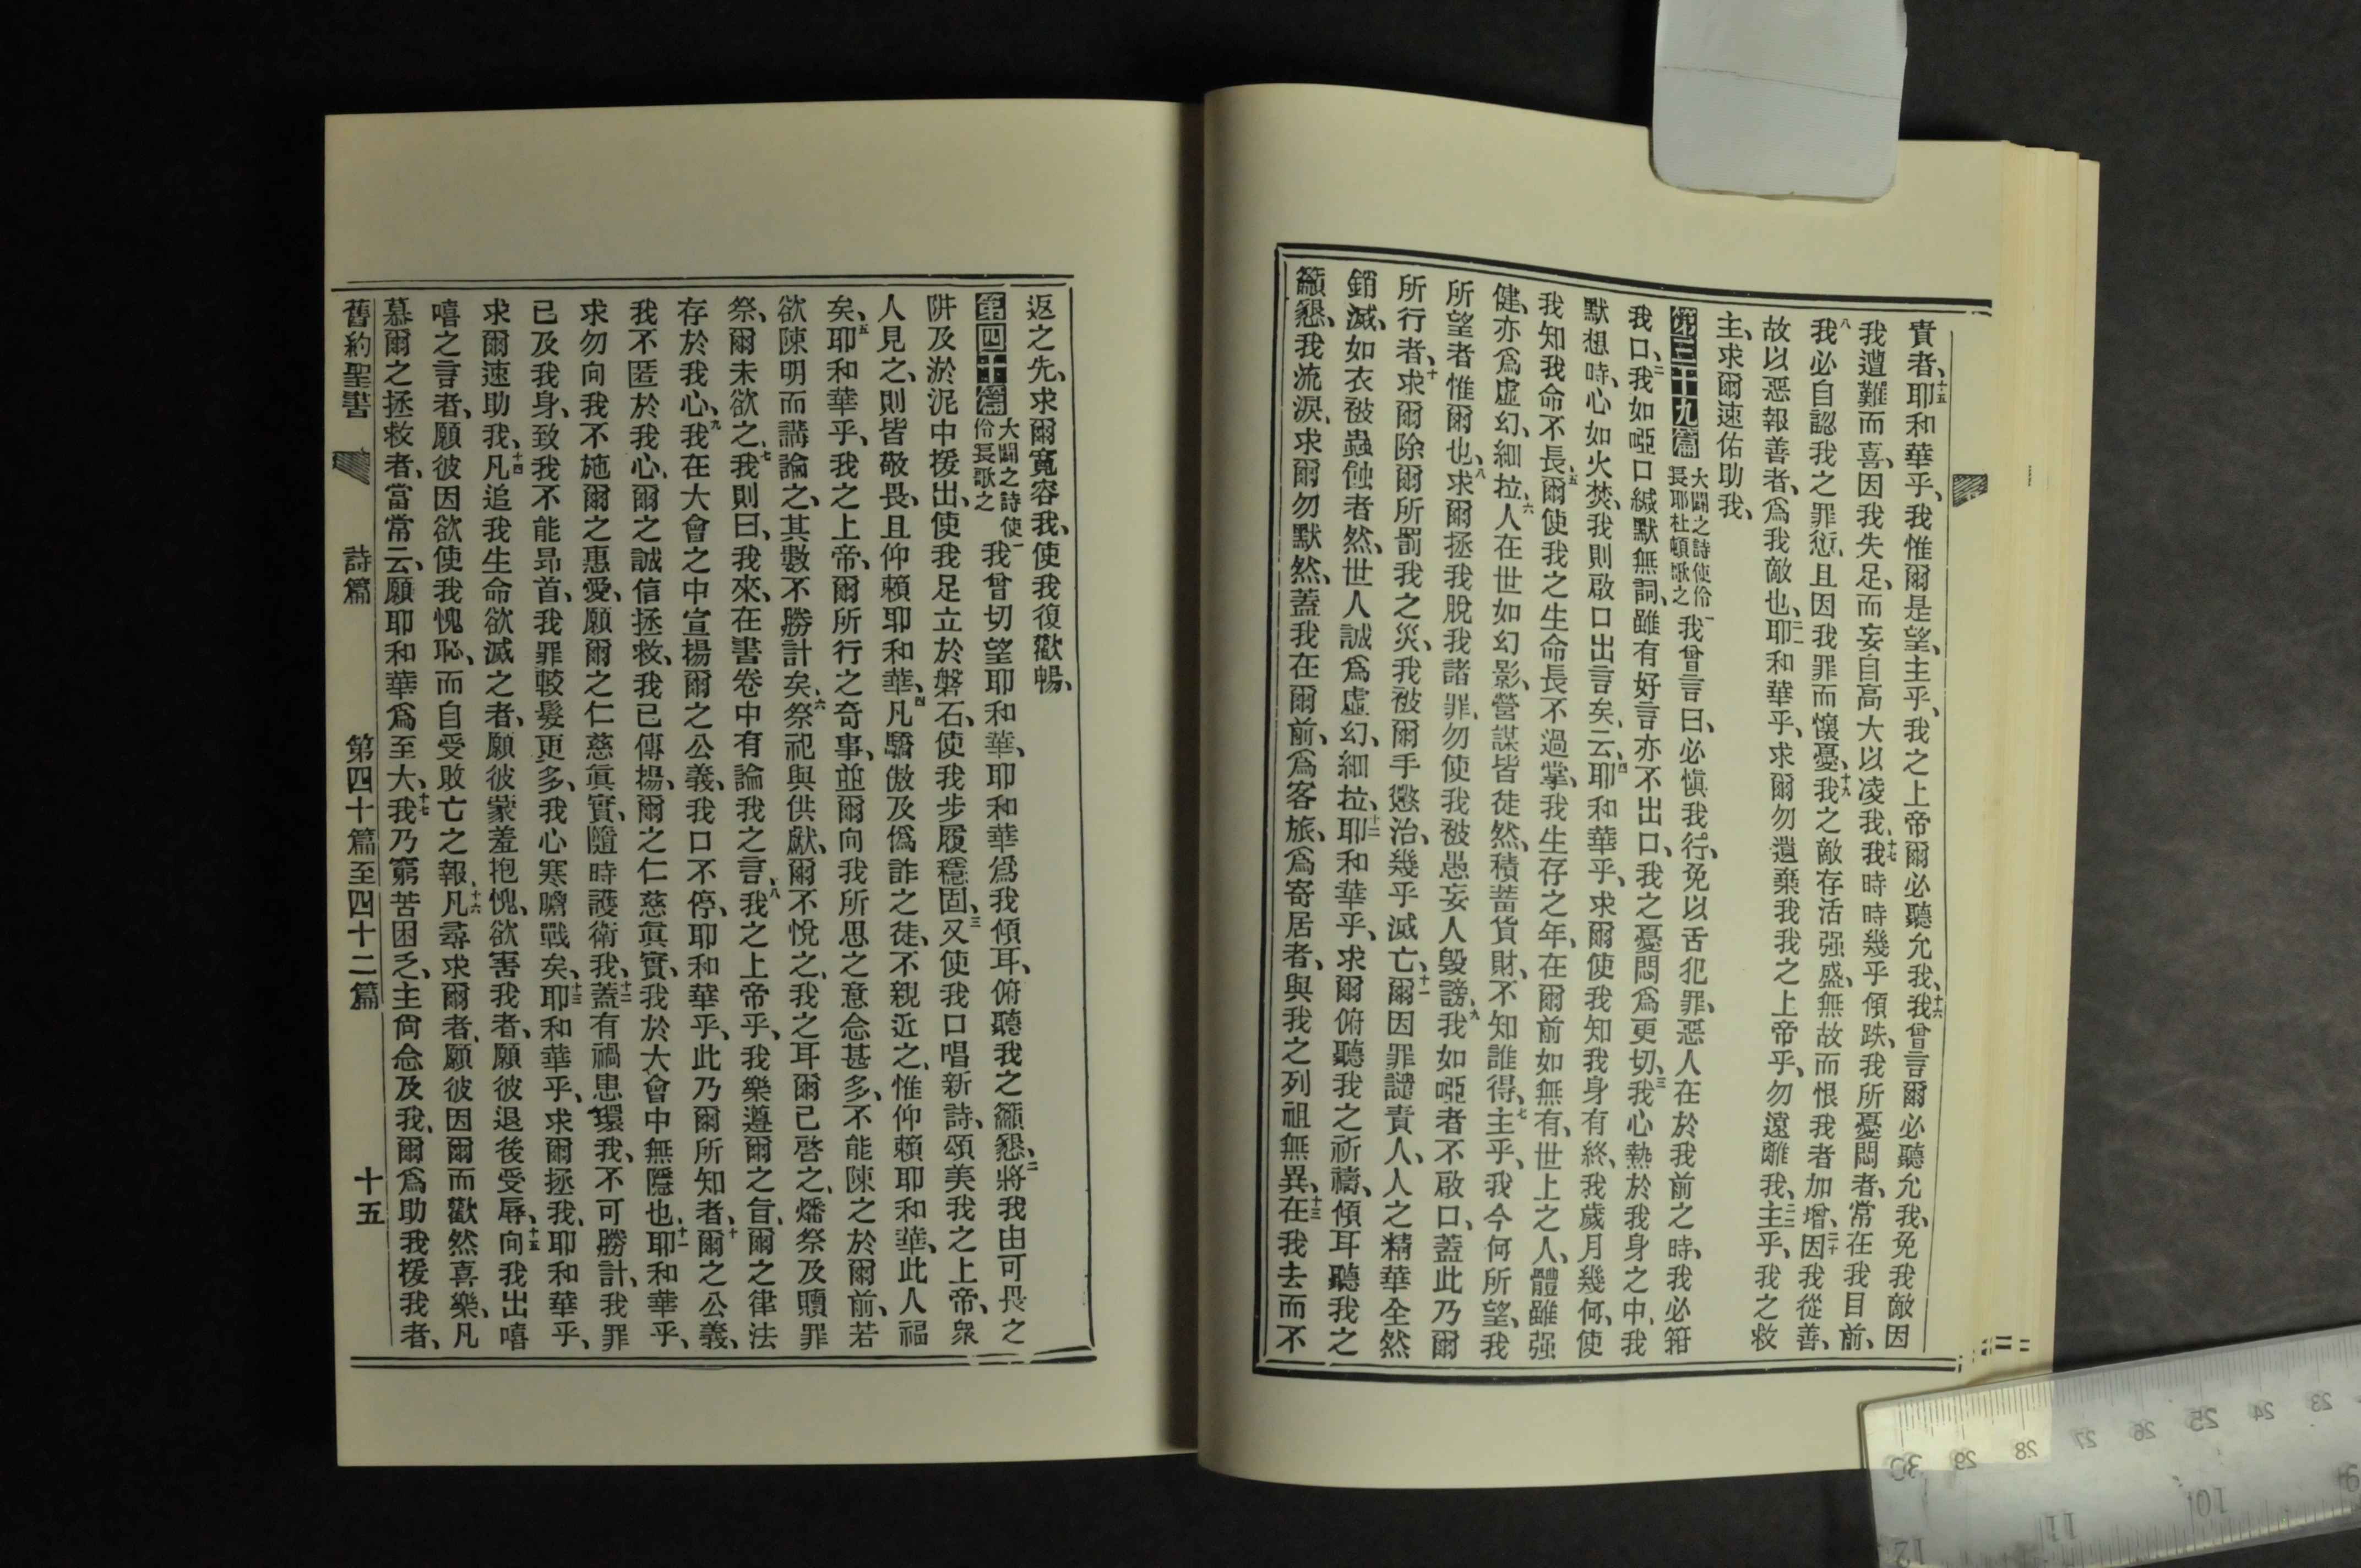 責者、十五耶和華乎、我惟爾是望、主乎、我之上帝爾必聽允我、十六我曾言爾必聽允我、免我敵因
我遭難而喜、因我失足、而妄自高大以凌我、十七我時時幾乎傾跌、我所憂悶者、常在我目前、
十八我必自認我之罪愆、且因我罪而懷憂、十九我之敵存活强盛、無故而恨我者加增、二十因我從善、
故以惡報善者、爲我敵也、二一耶和華乎、求爾勿遺棄我我之上帝乎、勿遠離我、二二主乎、我之救
主、求爾速佑助我、
第三十九篇 大闢之詩使伶長耶杜頓歌之 一我曾言曰、必愼我行、免以舌犯罪、惡人在於我前之時、我必箝
我口、二我如啞口緘默無詞、雖有好言亦不出口、我之憂悶爲更切、三我心熱於我身之中、我
默想時、心如火焚、我則啟口出言矣、云、四耶和華乎、求爾使我知我身有終、我歲月幾何、使
我知我命不長、五爾使我之生命長不過掌、我生存之年、在爾前如無有、世上之人、體雖强
健、亦爲虛幻、細拉、六人在世如幻影、營謀皆徒然、積蓄貨財、不知誰得、七主乎、我今何所望、我
所望者惟爾也、八求爾拯我脫我諸罪、勿使我被愚妄人毀謗、九我如啞者不啟口、蓋此乃爾
所行者、十求爾除爾所罰我之災、我被爾手懲治、幾乎滅亡、十一爾因罪譴責人、人之精華全然
銷滅、如衣被蟲蝕者然、世人誠爲虛幻、細拉、十二耶和華乎、求爾俯聽我之祈禱、傾耳聽我之
籲懇、我流淚、求爾勿默然、蓋我在爾前、爲客旅、爲寄居者、與我之列祖無異、十三在我去而不
返之先、求爾寬容我、使我復歡暢、
第四十篇 大闢之詩使伶長歌之 一我曾切望耶和華、耶和華爲我傾耳、俯聽我之籲懇、二將我由可畏之
阱及淤泥中援出、使我足立於磐石、使我步履穩固、三又使我口唱新詩、頌美我之上帝、衆
人見之、則皆敬畏、且仰賴耶和華、四凡驕傲及僞詐之徒、不親近之、惟仰賴耶和華、此人福
矣、五耶和華乎、我之上帝、爾所行之奇事、並爾向我所思之意念甚多、不能陳之於爾前、若
欲陳明而講論之、其數不勝計矣、六祭祀與供獻、爾不悅之、我之耳爾已啓之、燔祭及贖罪
祭、爾未欲之、七我則曰、我來、在書卷中有論我之言、八我之上帝乎、我樂遵爾之旨、爾之律法
存於我心、九我在大會之中宣揚爾之公義、我口不停、耶和華乎、此乃爾所知者、十爾之公義、
我不匿於我心、爾之誠信拯救、我已傳揚、爾之仁慈眞實、我於大會中無隱也、十一耶和華乎、
求勿向我不施爾之惠愛、願爾之仁慈眞實、隨時護衛我、十二蓋有禍患環我、不可勝計、我罪
已及我身、致我不能昂首、我罪較髮更多、我心寒膽戰矣、十三耶和華乎、求爾拯我、耶和華乎、
求爾速助我、十四凡追我生命欲滅之者、願彼蒙羞抱愧、欲害我者、願彼退後受辱、十五向我出嘻
嘻之言者、願彼因欲使我愧恥、而自受敗亡之報、十六凡尋求爾者、願彼因爾而歡然喜樂、凡
慕爾之拯救者、當常云、願耶和華爲至大、十七我乃窮苦困乏、主尙念及我、爾爲助我援我者、
舊約聖書 詩篇 第四十篇至四十二篇 十五